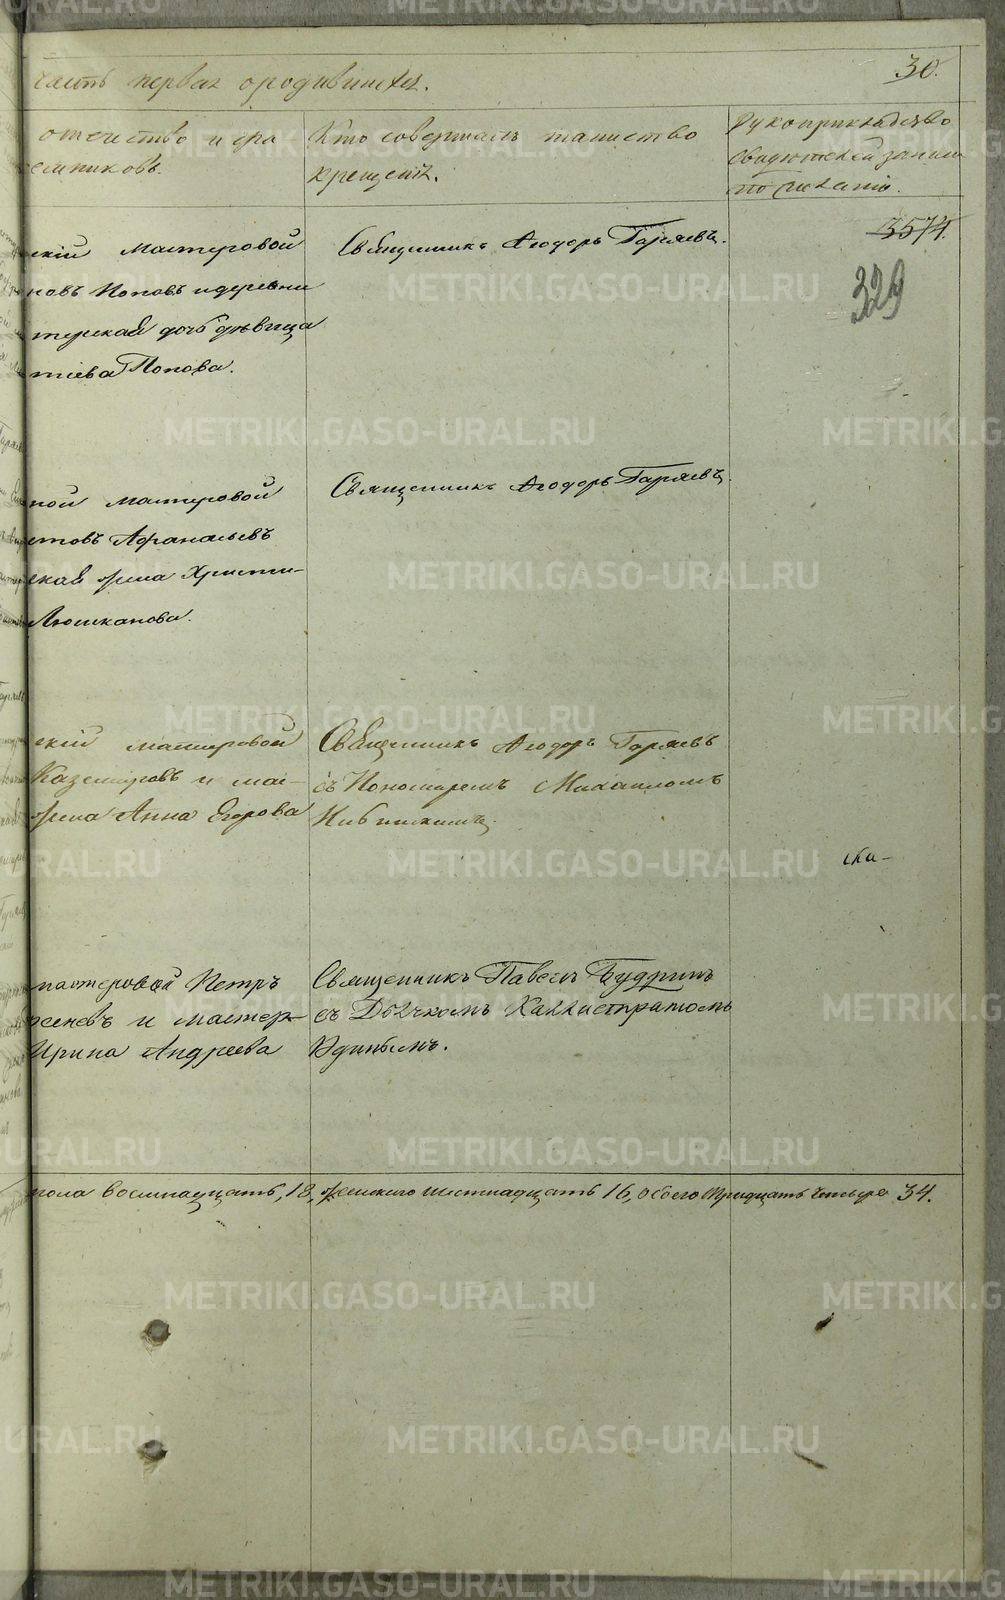 Часть первая о родившихся.
30.
отчество и фа
Кто совершалъ таинство
крещенія.
Рукоприкладство
свидѣтелей записи
по желанію.
3574.
329
скій мастеровой
новъ Поповъ и деревни
терская дочь дѣвица
тіева Попова.
Священникъ Ѳеодоръ Гаряевъ.
ной мастеровой
стовъ Афанасьевъ
ская жена Христи-
Люшканова.
Священникъ Ѳеодоръ Гаряевъ.
скій мастеровой
Каземировъ и мас-
жена Анна Егорова
Священникъ Ѳеодоръ Гаряевъ
съ Пономаремъ Михаиломъ
ска-
мастеровой Петръ
сеневъ и мастер-
Ирина Андреева
Священникъ Павелъ Будринъ
съ Дьячкомъ Каллистратомъ
Удинымъ.
пола восемнадцать, 18, женскаго шестнадцать 16, обоего тридцать четыре 34.
METRIKI.GASO-URAL.RU